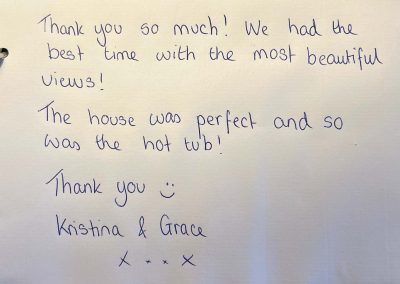 Thank you so much! We had the
best time with the most beautiful
views!
The house was perfect and so
was the hot tub!
Thank you :)
Kristina & Grace
x x x x